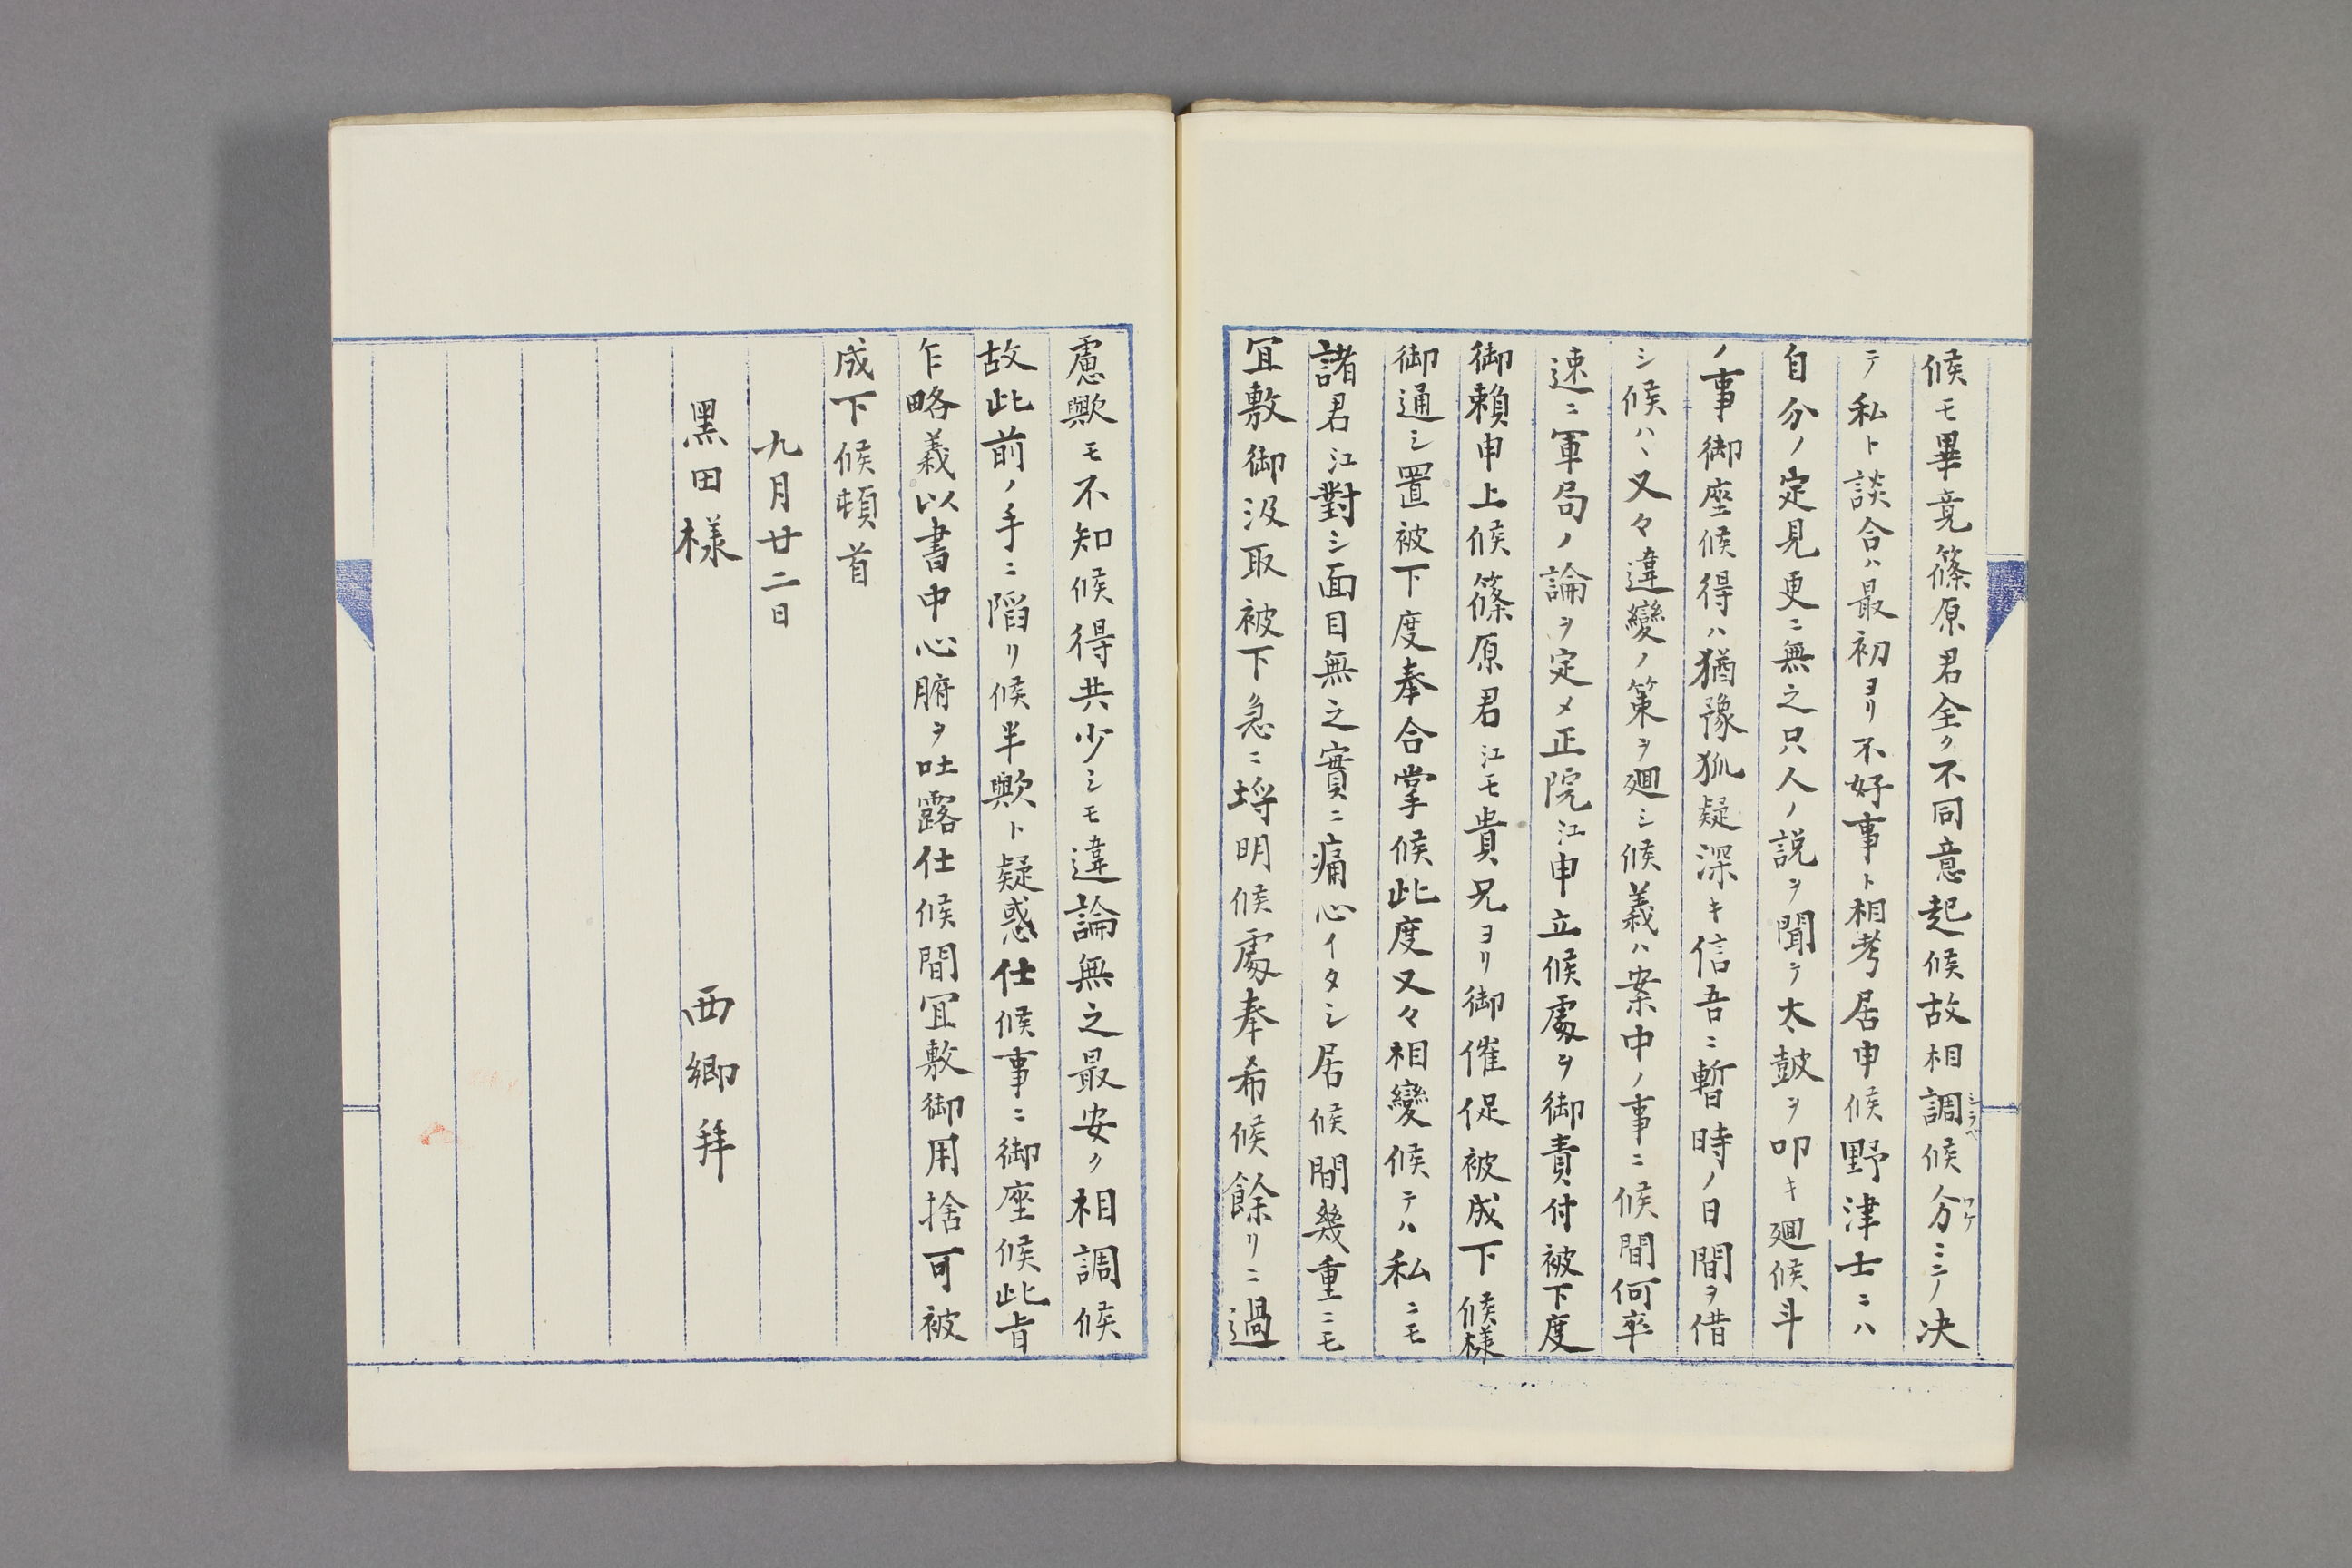 候モ畢竟篠原君全ク不同意起候故相調候分ミニノ决
シラベ
ワケ
テ私ト談合ハ最初ヨリ不好事ト相考居申候野津士ニハ
自分ノ定見更ニ無之只人ノ説ヲ聞テ太皷ヲ叩キ廻候斗
ノ事御座候得ハ猶豫狐疑深キ信吾ニ暫時ノ日間ヲ借
シ候ハヽ又々違變ノ策ヲ廻シ候義ハ案中ノ事ニ候間何卒
速ニ軍局ノ論ヲ定メ正院江申立候處ヲ御責付被下度
御賴申上候篠原君江モ貴兄ヨリ御催促被成下候樣
御通シ置被下度奉合掌候此度又々相變候テハ私ニモ
諸君江對シ面目無之實ニ痛心イタシ居候間幾重ニモ
冝敷御汲取被下急ニ埒明候處奉希候餘リニ過
慮歟モ不知候得共少シモ違論無之最安ク相調候
故此前ノ手ニ陷リ候半歟ト疑惑仕候事ニ御座候此旨
乍略義以書中心腑ヲ吐露仕候間冝敷御用捨可被
成下候頓首
九月廿二日
黑田樣　西郷拜